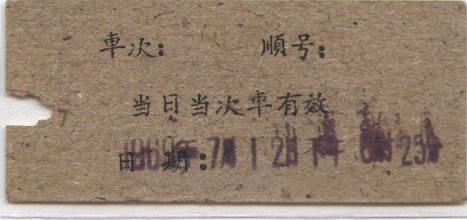 車次: 順号:
7
当日当次車有效
日期: 1969年7月12日